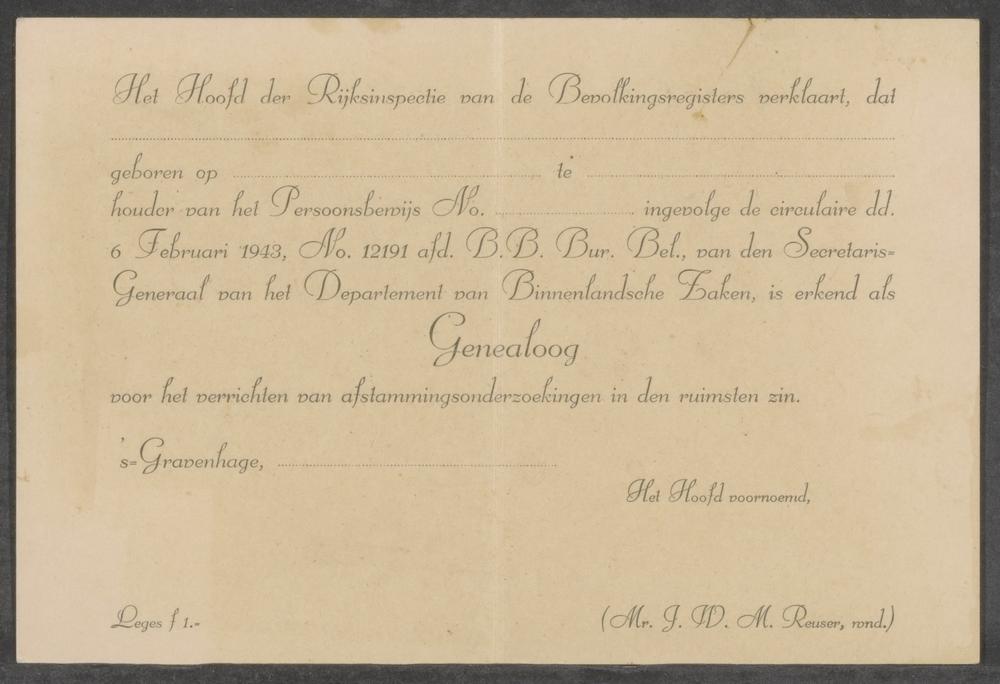 Het Hoofd der Rijksinspectie van de Bevolkingsregisters verklaart, dat
geboren op te
houder van het Persoonsbewijs No. ingevolge de circulaire dd.
6 Februari 1943, No. 12191 afd. B.B. Bur. Bel., van den Secretaris=
Generaal van het Departement van Binnenlandsche Zaken, is erkend als
Genealoog
voor het verrichten van afstammingsonderzoekingen in den ruimsten zin.
's=Gravenhage,
Het Hoofd voornoemd,
Leges f 1.-
(Mr. J. W. M. Reuser, wnd.)